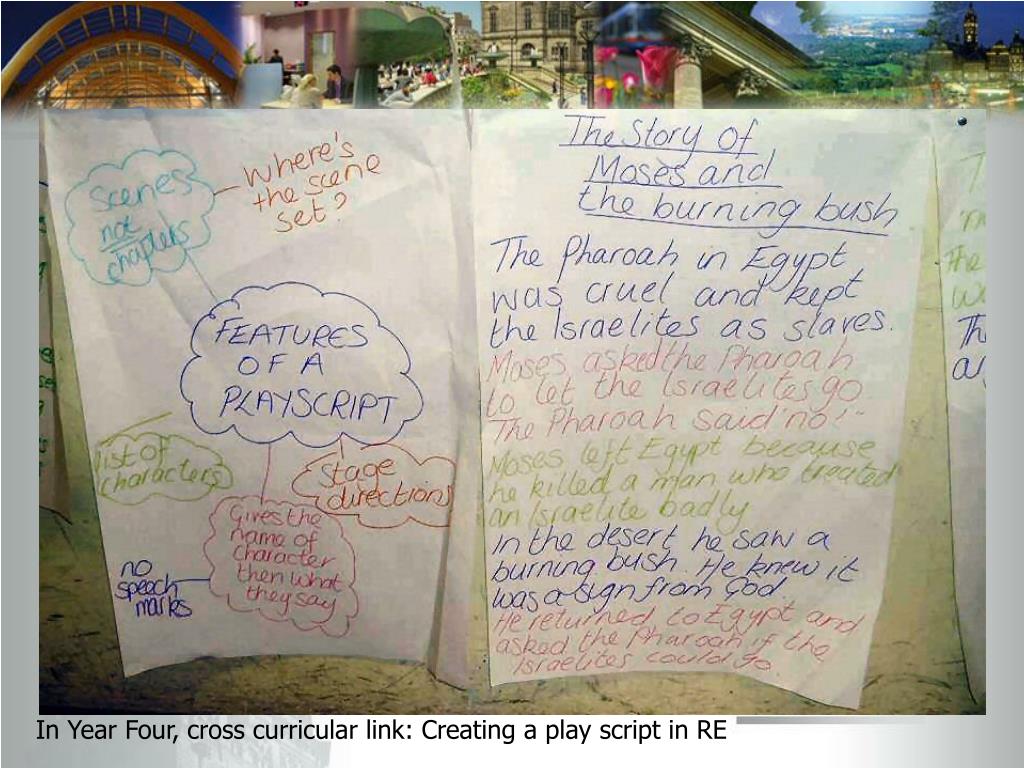 Scenes
not
chapters
Where's
the scene
set?
FEATURES
OF A
PLAYSCRIPT
list of
characters
Stage
directions
Gives the
name of
character
then what
they say
no
speech
marks
The Story of
Moses and
the burning bush
The Pharoah in Egypt
was cruel and kept
the Israelites as slaves.
Moses asked the Pharoah
to let the Israelites go
The Pharoah said 'no!'
Moses left Egypt because
he killed a man who treated
an Israelite badly
In the desert he saw a
burning bush. He knew it
was a sign from God.
He returned to Egypt and
asked the Pharoah if the
Israelites could go.
In Year Four, cross curricular link: Creating a play script in RE